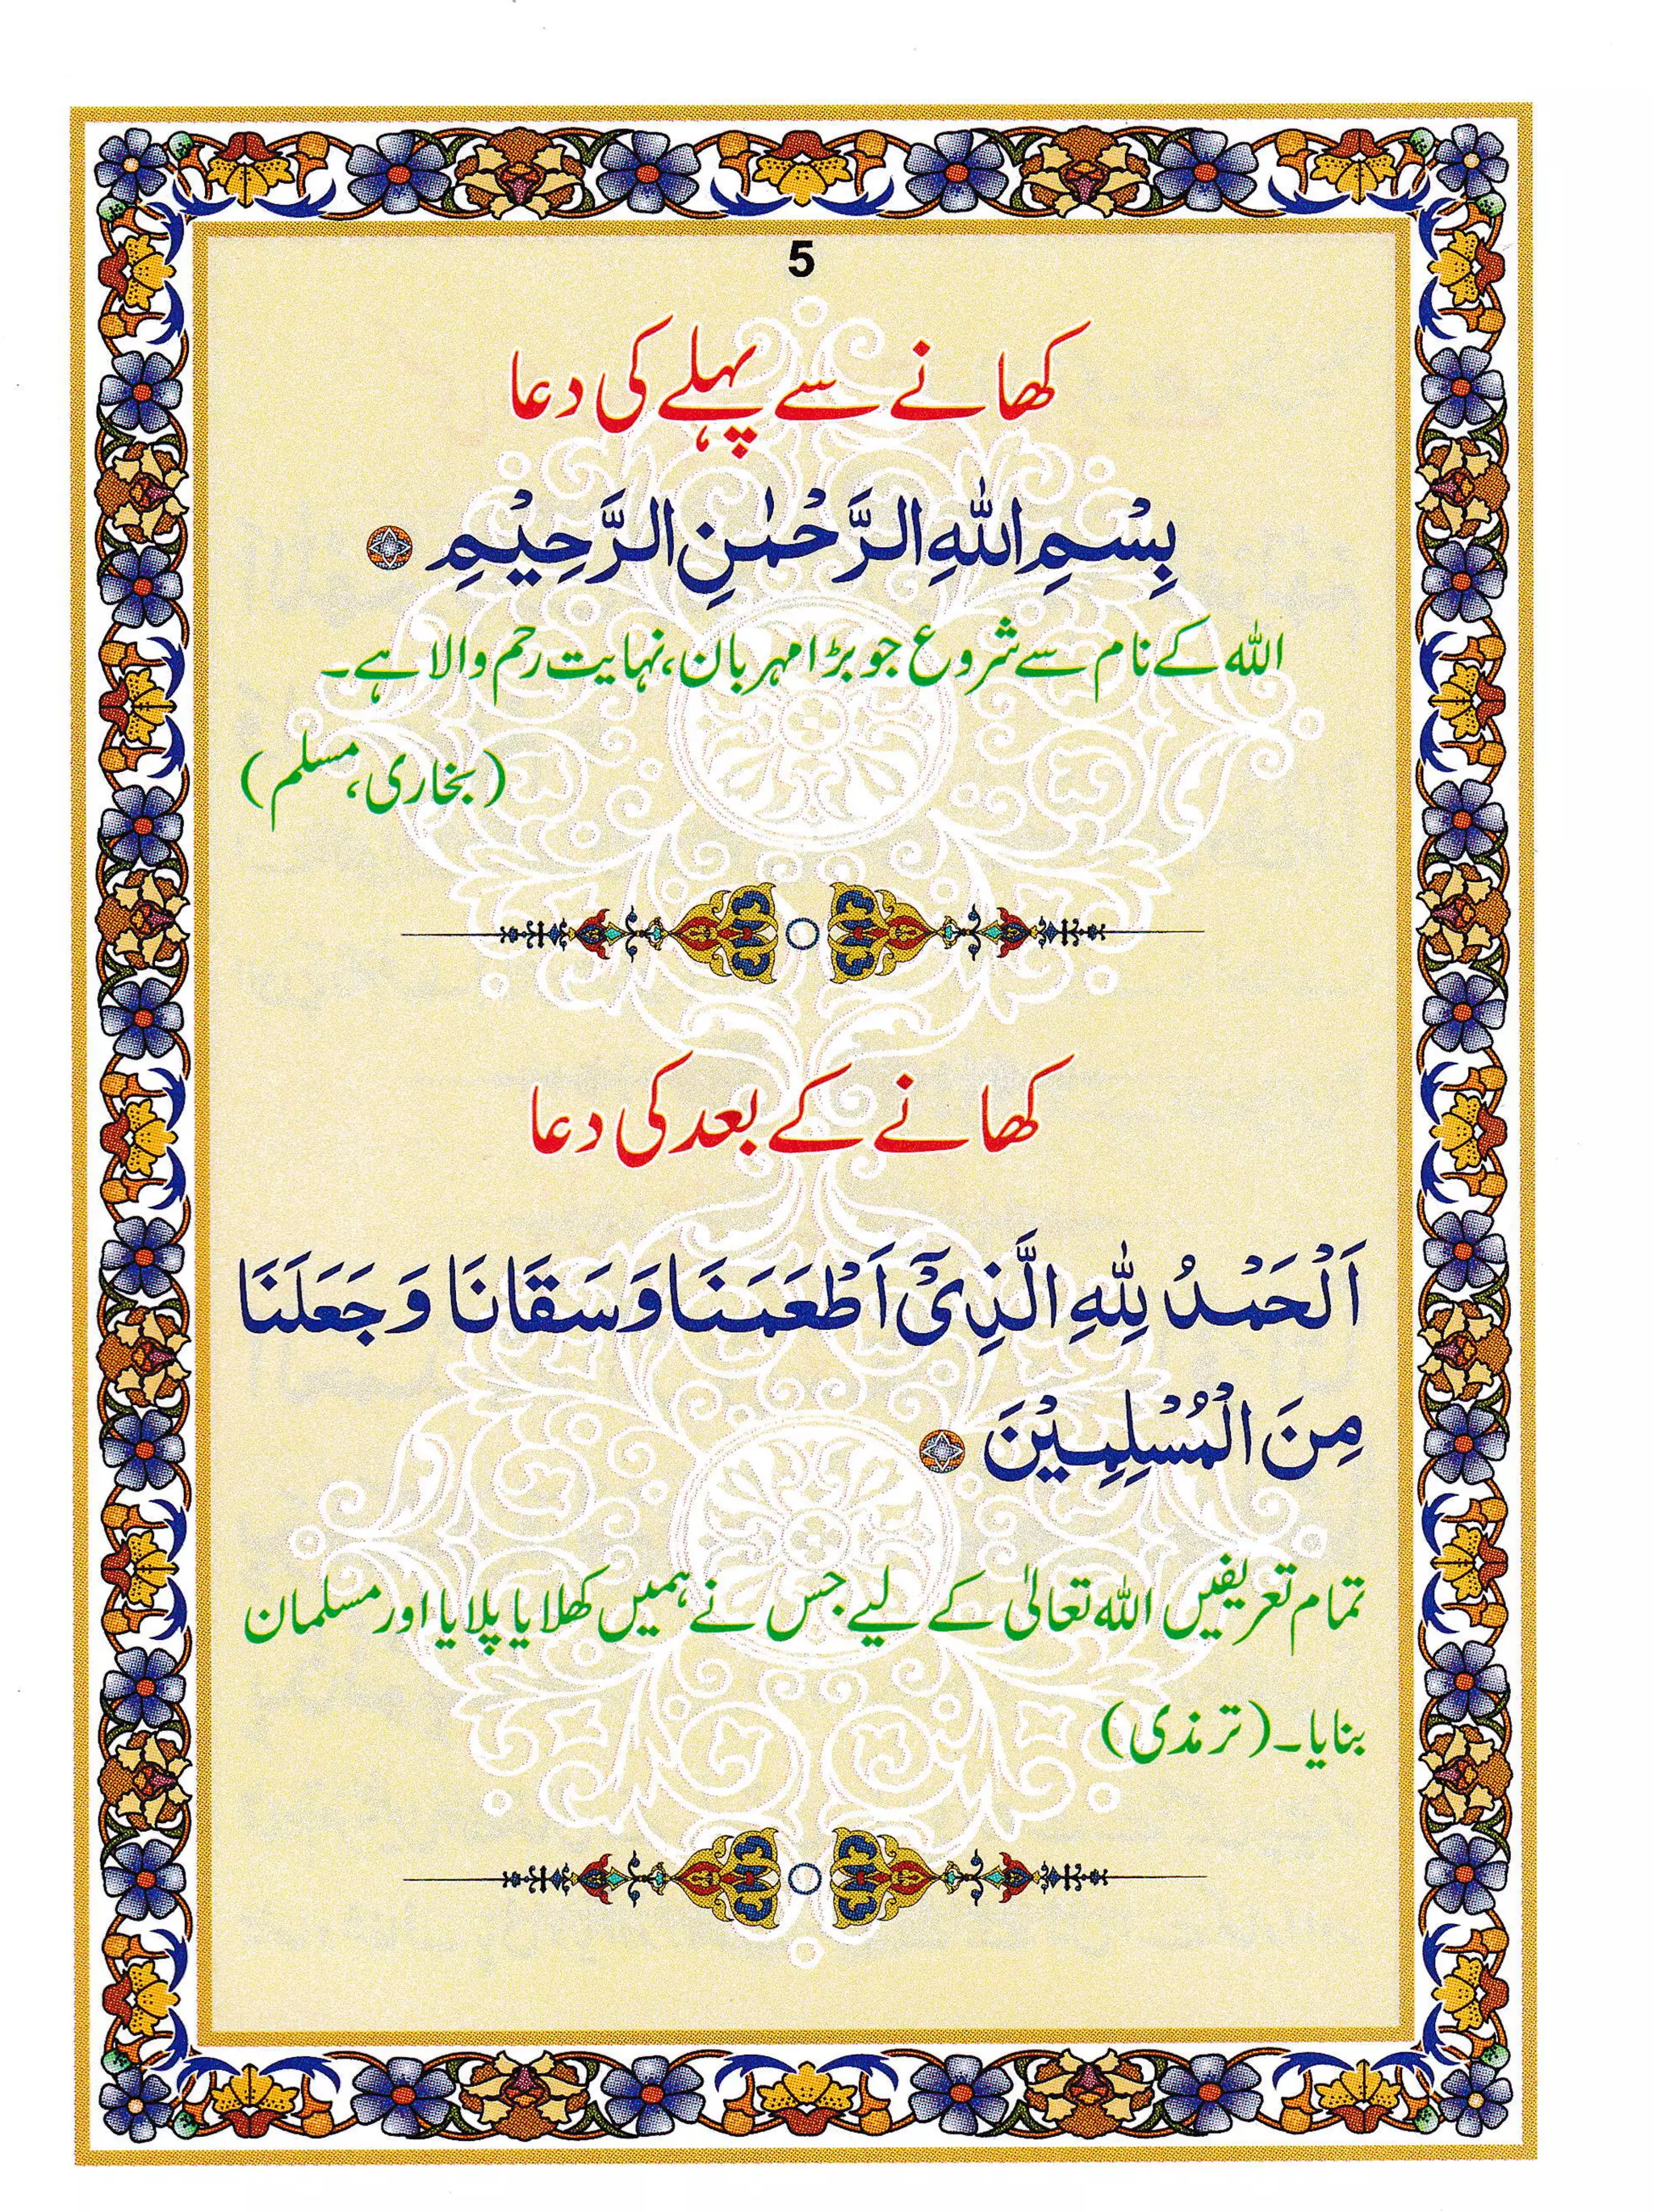 5
کھانے سے پہلے کی دعا
بِسْمِ اللّٰهِ الرَّحْمٰنِ الرَّحِيْمِ
اللہ کے نام سے شروع جو بڑا مہربان، نہایت رحم والا ہے۔
(بخاری، مسلم)
کھانے کے بعد کی دعا
اَلْحَمْدُ لِلّٰهِ الَّذِىْٓ اَطْعَمَنَا وَسَقَانَا وَجَعَلَنَا
مِنَ الْمُسْلِمِيْنَ
تمام تعریفیں اللہ تعالیٰ کے لیے جس نے ہمیں کھلایا پلایا اور مسلمان
بنایا۔ (ترمذی)